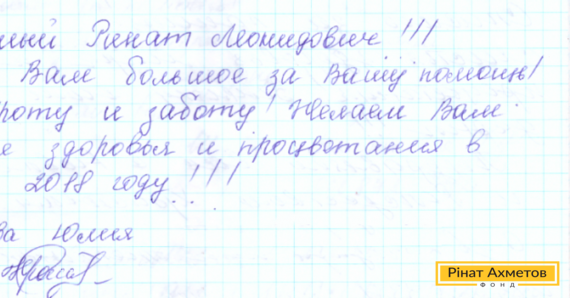 ный Ринат Леонидович!!!
Вам большое за Вашу помощь!
роту и заботу! Желаем Вам
е здоровья и процвотания в
2018 году!!!
ва Юлия
Рінат Ахметов
ФОНД